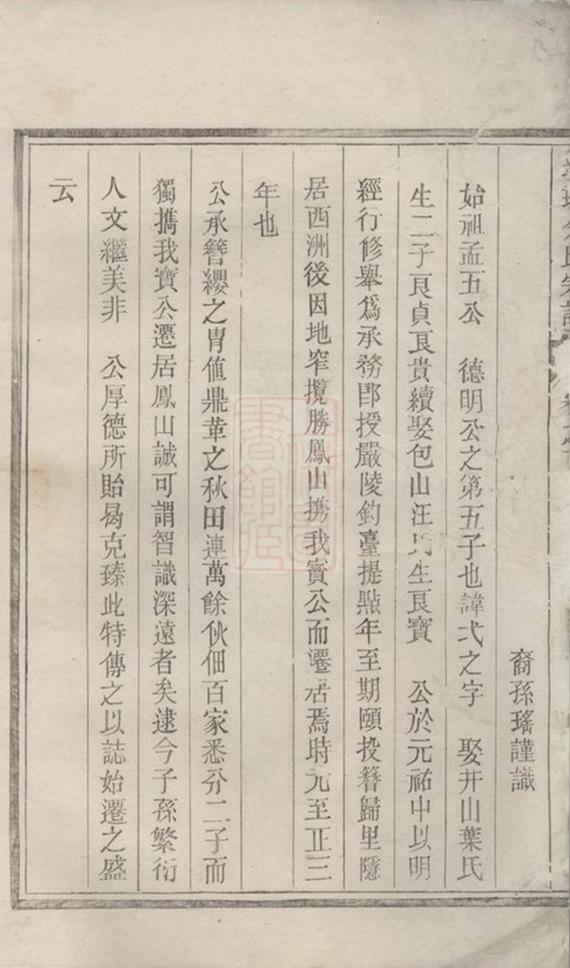 裔孫瑤謹識
始祖孟五公　德明公之第五子也諱弍之字　娶井山葉氏
生二子良貞良貴續娶包山汪氏生良寶　公於元祐中以明
經行修舉爲承務郎授嚴陵釣臺提㸃年至期頤投簪歸里隱
居西洲後因地窄攬勝鳳山携我寳公而遷居焉時元至正三
年也
公承簪纓之胄値鼎革之秋田連萬餘伙佃百家悉分二子而
獨擕我寳公遷居鳳山誠可謂智識深遠者矣逮今子孫繁衍
人文繼美非　公厚德所貽曷克臻此特傳之以誌始遷之盛
云